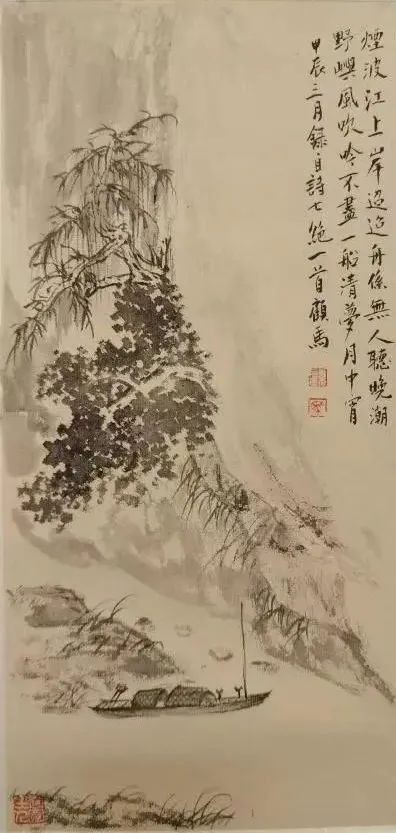 煙波江上岸迢迢舟係無人聽晚潮
野嶼風吹吟不盡一船清夢月中宵
甲辰三月錄自詩七絕一首顧馬